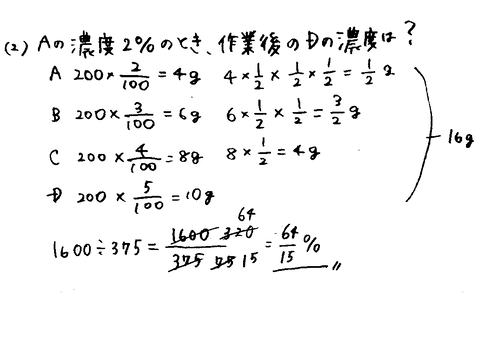 (2) Aの濃度2%のとき、作業後のDの濃度は?
A 200×2/100=4g 4×1/2×1/2×1/2=1/2g
B 200×3/100=6g 6×1/2×1/2=3/2g
C 200×4/100=8g 8×1/2=4g
D 200×5/100=10g
16g
64
1600÷375=1600 320/375 75 15=64/15%